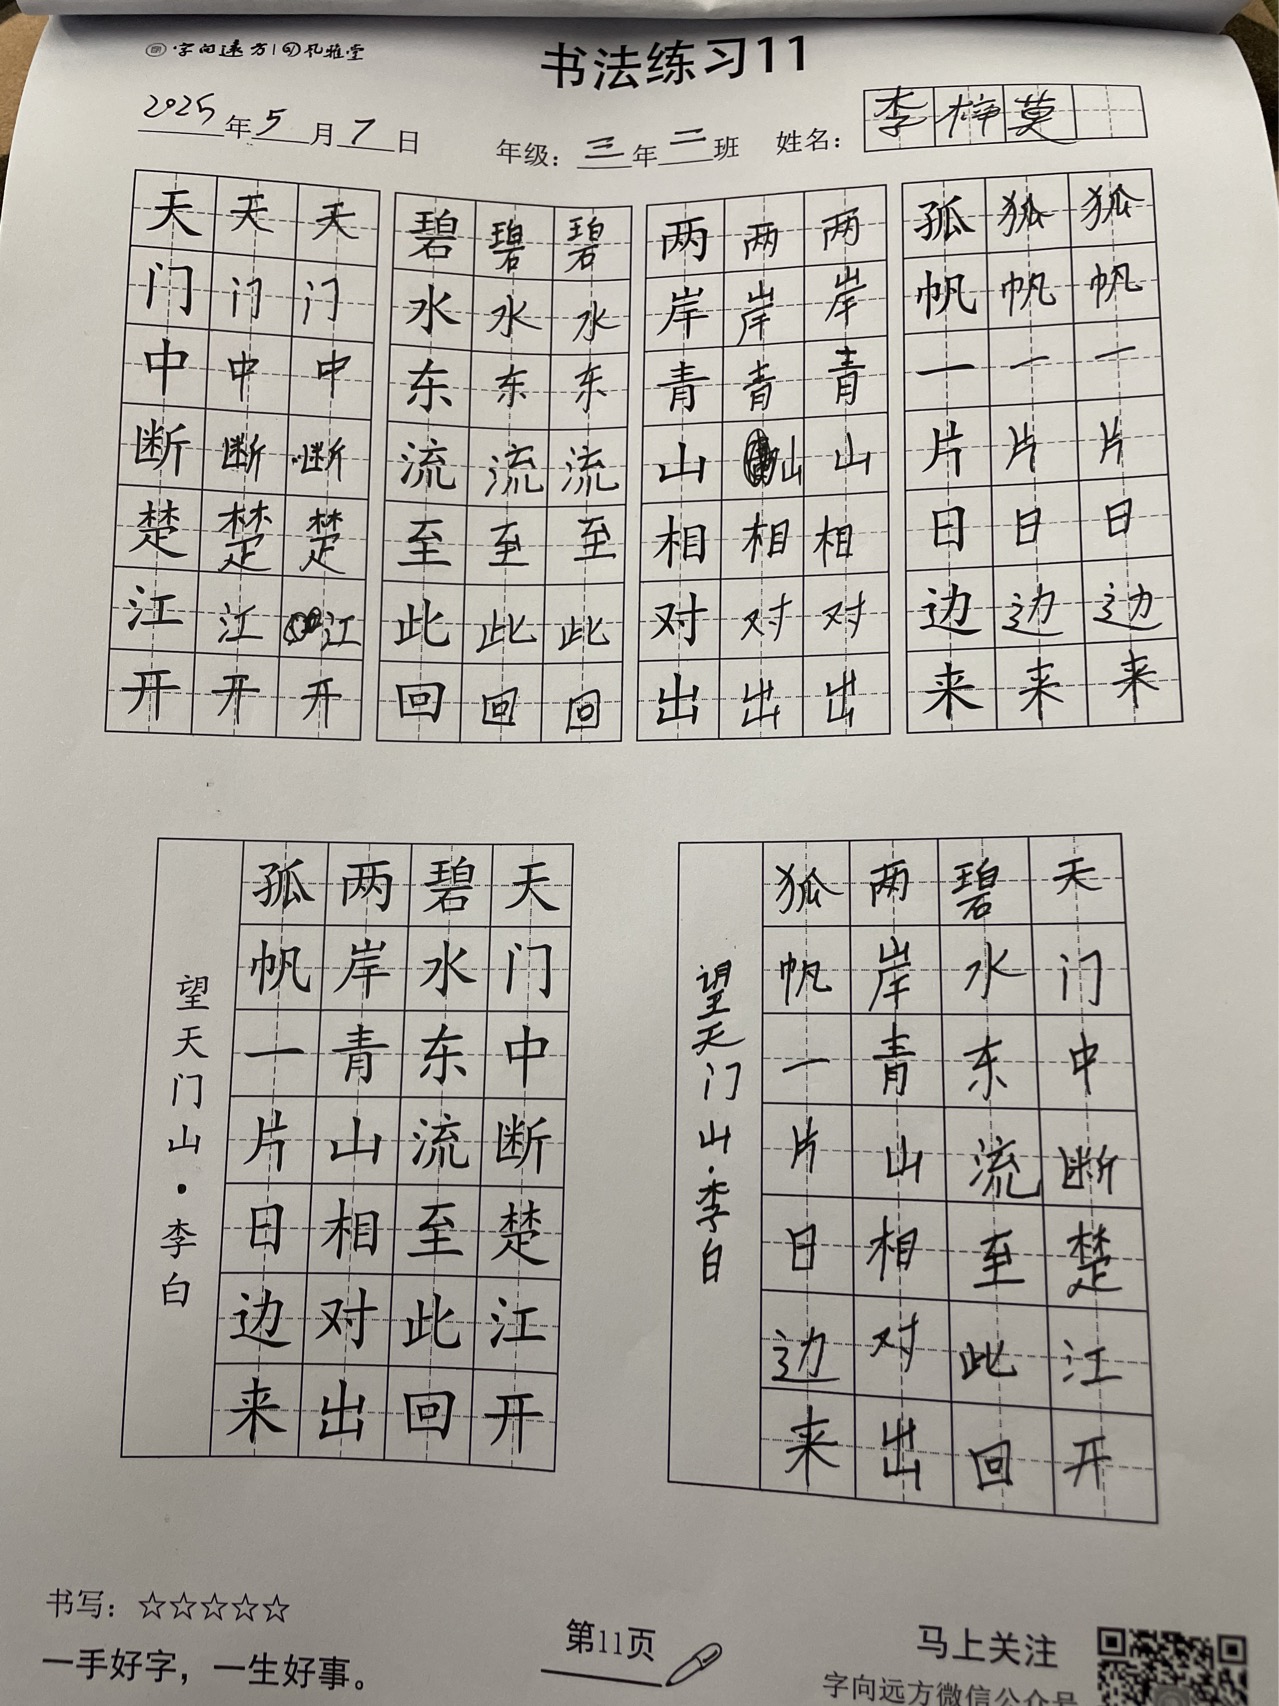 字向遠方 | 孔雅堂
书法练习11
2025年5月7日 年级：三年二班 姓名：李梓莫
天天天
门门门
中中中
断断断
楚楚楚
江江江
开开开
碧碧碧
水水水
东东东
流流流
至至至
此此此
回回回
两两两
岸岸岸
青青青
山山山
相相相
对对对
出出出
孤狐狐
帆帆帆
一一一
片片片
日日日
边边边
来来来
天门中断楚江开
碧水东流至此回
两岸青山相对出
孤帆一片日边来
望天门山·李白
天门中断楚江开
碧水东流至此回
两岸青山相对出
狐帆一片日边来
望天门山·李白
书写：☆☆☆☆☆
一手好字，一生好事。
第11页
马上关注
字向远方微信公众号